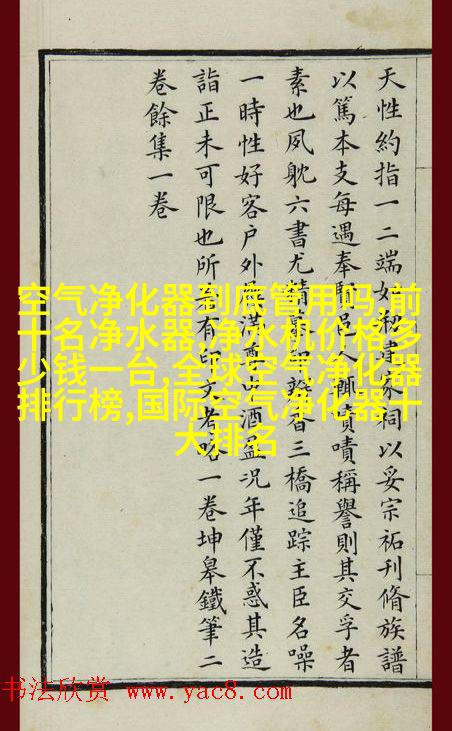 天性約指一二端如建家祠以妥宗祏刊脩族譜
以篤本支每遇奉邑人嘖嘖稱譽則其交孚者
素也夙躭六書尤精香三橋追踪主臣名噪
一時性好客戶外滿尊中酒盈況年僅不惑其造
詣正未可限也所著有印文考略一卷坤皋鐵筆二
卷餘集一卷
空气净化器到底管用吗,前
十名净水器,净水机价格多
少钱一台,全球空气净化器
排行榜,国际空气净化器十
大排名
书法欣赏 www.yac8.com